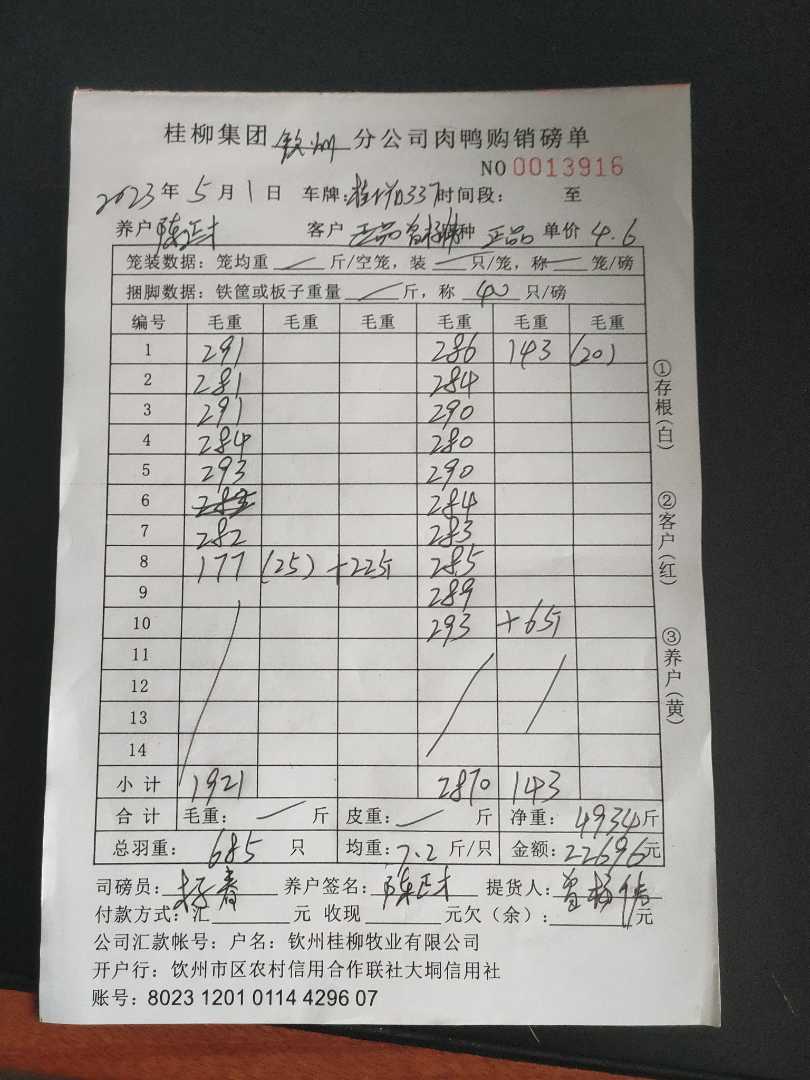 桂柳集团 钦州 分公司肉鸭购销磅单
NO 0013916
2023年5月1日 车牌: 时间段: 至
养户 陈正才 客户 正品 种 正品 单价 4.6
笼装数据:笼均重 / 斤/空笼,装 — 只/笼,称 — 笼/磅
捆脚数据:铁筐或板子重量 / 斤,称 40 只/磅
编号 毛重 毛重 毛重 毛重 毛重 毛重
1 291 286 143 (20)
2 281 284
3 291 290
4 284 280
5 293 290
6 284
7 282 283
8 177 (25) +22斤 285
9 289
10 293 +6斤
11
12
13
14
小计 1921 2870 143
合计 毛重: / 斤 皮重: / 斤 净重: 4934斤
总羽重: 685 只 均重: 7.2 斤/只 金额: 22696元
司磅员: 养户签名: 陈正才 提货人:
付款方式:汇 元 收现 元欠(余): 元
公司汇款帐号:户名:钦州桂柳牧业有限公司
开户行:饮州市区农村信用合作联社大垌信用社
账号:8023 1201 0114 4296 07
①存根(白)
②客户(红)
③养户(黄)